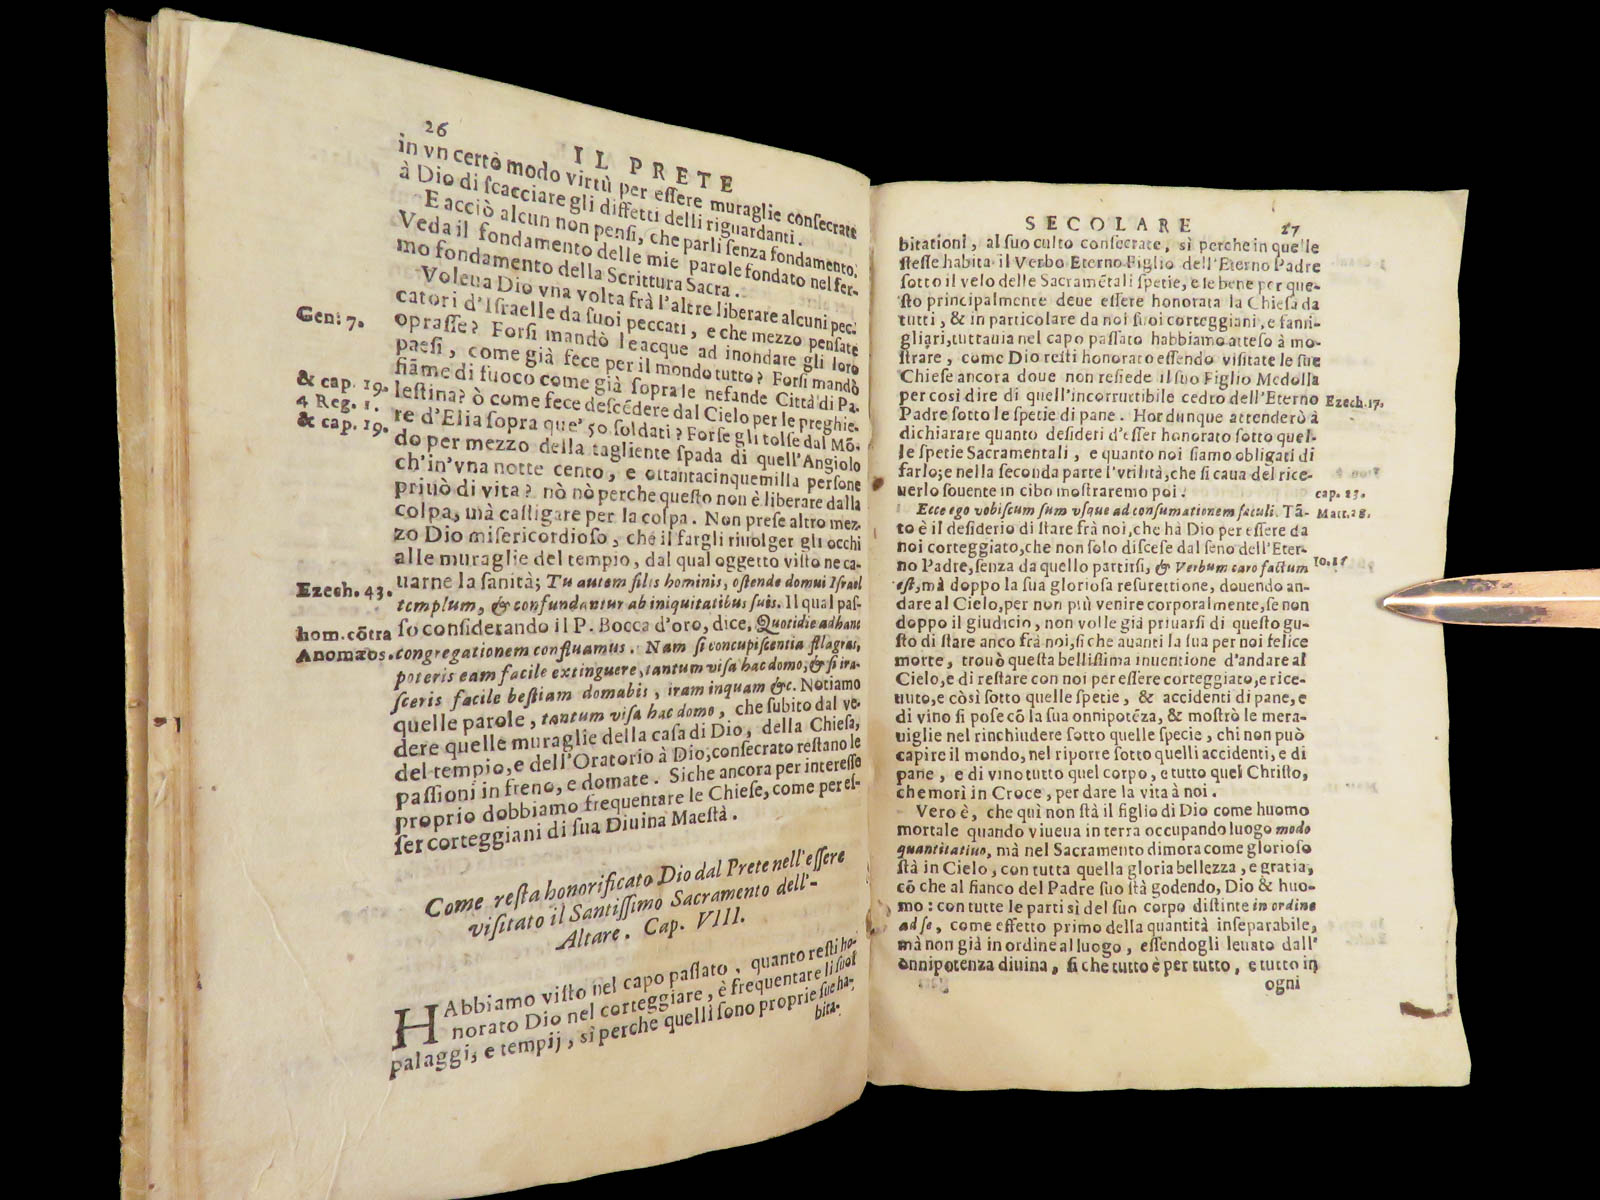 26
IL PRETE
in vn certo modo virtù per essere muraglie consecrate
à Dio di scacciare gli diffetti delli riguardanti.
E acciò alcun non pensi, che parli senza fondamento,
Veda il fondamento delle mie parole fondato nel fer-
mo fondamento della Scrittura Sacra.
Voleua Dio vna volta frà l'altre liberare alcuni pec-
catori d'Israelle da suoi peccati, e che mezzo pensate
Gen: 7.
oprasse? Forsi mandò leacque ad inondare gli loro
paesi, come già fece per il mondo tutto? Forsi mandò
fiāme di fuoco come già sopra le nefande Città di Pa-
& cap. 19.
lestina? ò come fece descēdere dal Cielo per le preghie-
4 Reg. 1.
re d'Elia sopra que' 50. soldati? Forse gli tolse dal Mō-
& cap. 19.
do per mezzo della tagliente spada di quell'Angiolo
ch'in'vna notte cento, e ottantacinquemilla persone
priuò di vita? nò nò perche questo non è liberare dalla
colpa, mà castigare per la colpa. Non prese altro mez-
zo Dio misericordioso, che il fargli riuolger gli occhi
alle muraglie del tempio, dal qual oggetto visto ne ca-
uarne la sanità; Tu autem filis hominis, ostende domui Israel
Ezech. 43.
templum, & confundantur ab iniquitatibus suis. Il qual pas-
so considerando il P. Bocca d'oro, dice, Quotidie ad hanc
hom. cōtra
Anomæos.
congregationem confluamus. Nam si concupiscentia flagras,
poteris eam facile extinguere, tantum visa hac domo, & si ira-
sceris facile bestiam domabis, iram inquam &c. Notiamo
quelle parole, tantum visa hac domo, che subito dal ve-
dere quelle muraglie della casa di Dio, della Chiesa,
del tempio, e dell'Oratorio à Dio, consecrato restano le
passioni in freno, e domate. Siche ancora per interesse
proprio dobbiamo frequentare le Chiese, come per es-
ser corteggiani di sua Diuina Maestà.
Come resta honorificato Dio dal Prete nell'essere
visitato il Santissimo Sacramento dell'-
Altare. Cap. VIII.
HAbbiamo visto nel capo passato, quanto resti ho-
norato Dio nel corteggiare, è frequentare li suoi
palaggi, e tempij, sì perche quelli sono proprie sue ha-
bita-
SECOLARE
27
bitationi, al suo culto consecrate, sì perche in quelle
stesse habita il Verbo Eterno Figlio dell'Eterno Padre
sotto il velo delle Sacramētali spetie, e se bene per que-
sto principalmente deue essere honorata la Chiesa da
tutti, & in particolare da noi suoi corteggiani, e fami-
gliari, tuttauia nel capo passato habbiamo atteso à mo-
strare, come Dio resti honorato essendo visitate le sue
Chiese ancora doue non resiede il suo Figlio Medolla
per così dire di quell'incorruttibile cedro dell'Eterno
Ezech. 17.
Padre sotto le spetie di pane. Hor dunque attenderò à
dichiarare quanto desideri d'esser honorato sotto quel-
le spetie Sacramentali, e quanto noi siamo obligati di
farlo; e nella seconda parte l'vtilità, che si caua del rice-
uerlo souente in cibo mostraremo poi.
cap. 23.
Ecce ego vobiscum sum vsque ad consumationem sæculi. Tā-
Matt. 28.
to è il desiderio di stare frà noi, che hà Dio per essere da
noi corteggiato, che non solo discese dal seno dell'Eter-
no Padre, senza da quello partirsi, & Verbum caro factum
Io. 1.
est, mà doppo la sua gloriosa resurettione, douendo an-
dare al Cielo, per non più venire corporalmente, se non
doppo il giudicio, non volle già priuarsi di questo gu-
sto di stare anco frà noi, si che auanti la sua per noi felice
morte, trouò questa bellissima inuentione d'andare al
Cielo, e di restare con noi per essere corteggiato, e rice-
uuto, e còsì sotto quelle spetie, & accidenti di pane, e
di vino si pose cō la sua onnipotēza, & mostrò le mera-
uiglie nel rinchiudere sotto quelle specie, chi non può
capire il mondo, nel riporre sotto quelli accidenti, e di
pane, e di vino tutto quel corpo, e tutto quel Christo,
che morì in Croce, per dare la vita à noi.
Vero è, che quì non stà il figlio di Dio come huomo
mortale quando viueua in terra occupando luogo modo
quantitatiuo, mà nel Sacramento dimora come glorioso
stà in Cielo, con tutta quella gloria bellezza, e gratia,
cō che al fianco del Padre suo stà godendo, Dio & huo-
mo: con tutte le parti sì del suo corpo distinte in ordine
ad se, come effetto primo della quantità inseparabile,
mà non già in ordine al luogo, essendogli leuato dall'
onnipotenza diuina, si che tutto è per tutto, e tutto in
ogni